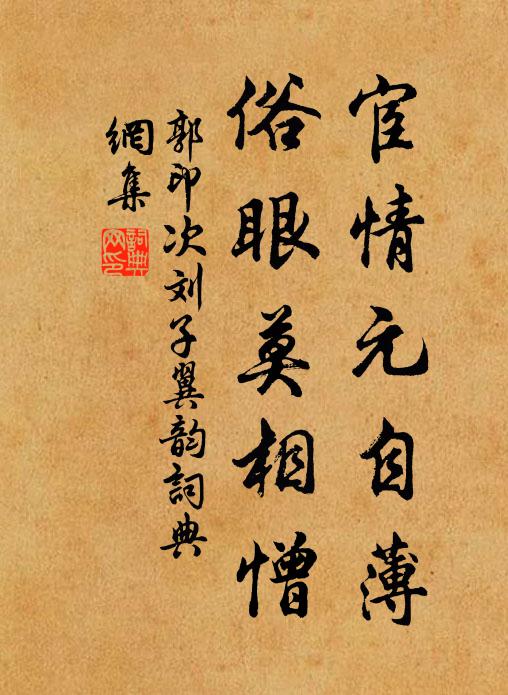 宦情元自薄
俗眼莫相憎
郭印次刘子翼韵詞典
網集
詞典
网印